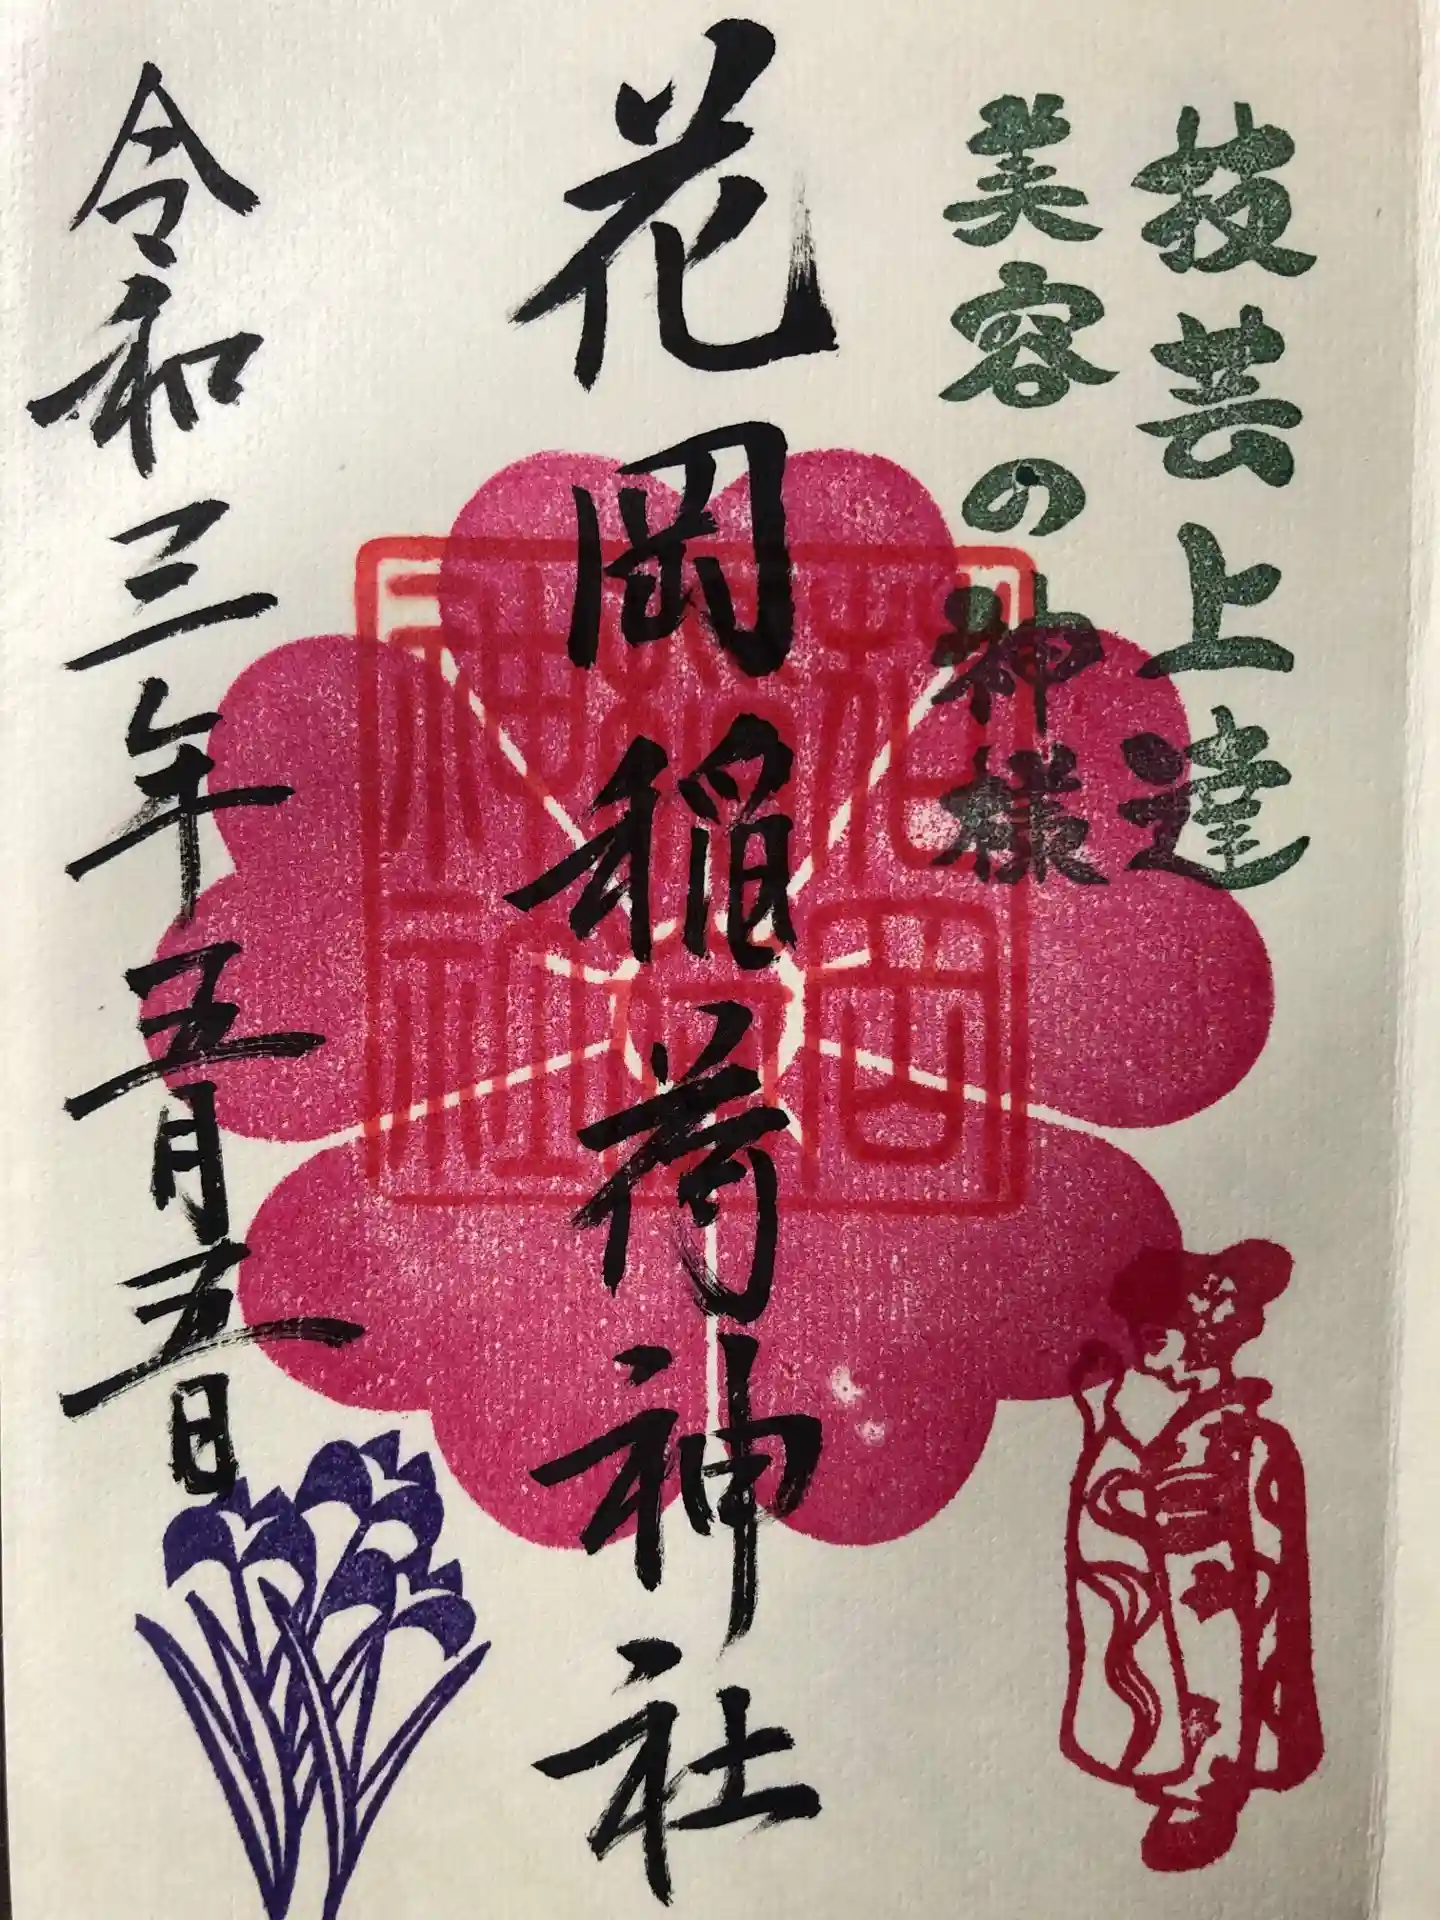 技芸上達
美容の神様
花岡稲荷神社
花岡稲荷神社
令和三年五月五日